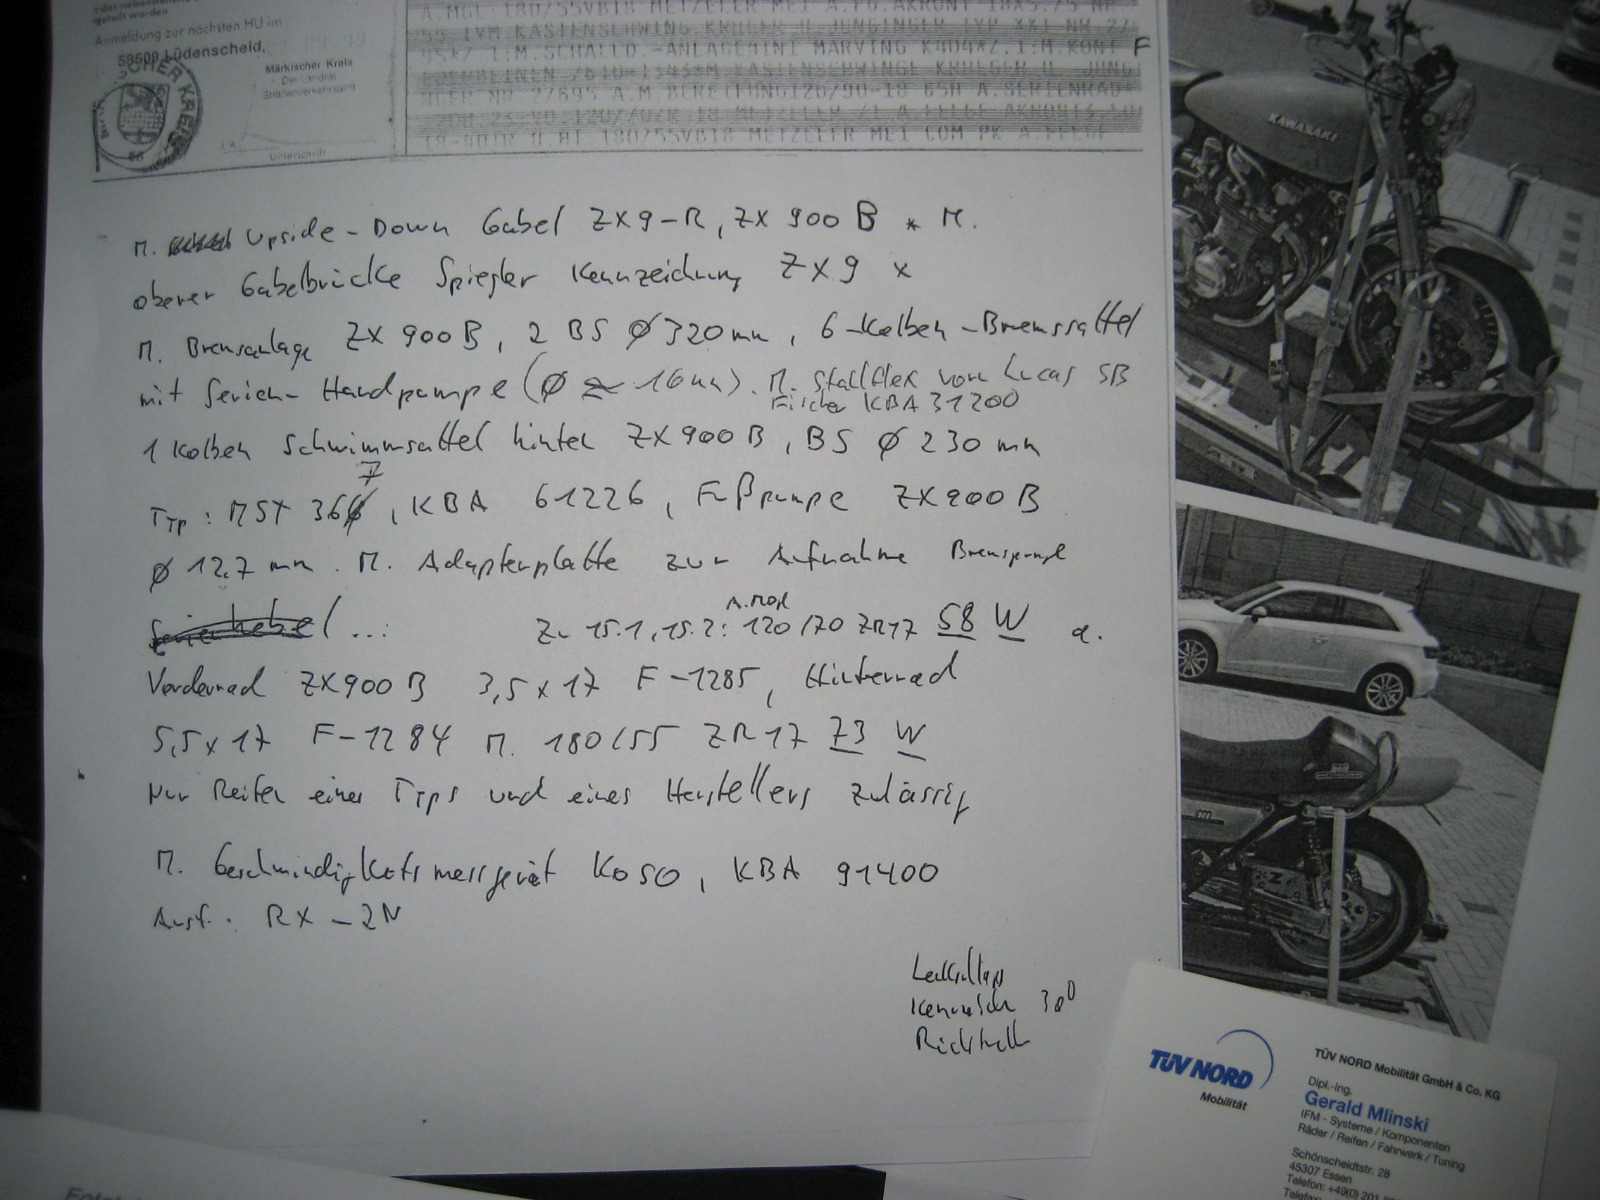 geteilt worden
Anmeldung zur nächsten HU im
58509 Lüdenscheid,
Märkischer Kreis
Der Landrat
Straßenverkehrsamt
Unterschrift
A.MGL.180/55VB18 METZELER ME1 A.FG.AKRONT 18X5.75 NR.
KASTENSCHWING.KRUEGER U.JUNGINGER TYP XX1 NR.2/
1:M.SCHALLD.-ANLAGE MARVING K404*Z.1:M.KONI F
EDERBEINEN 7610-1343*M.KASTENSCHWINGE KRUEGER U. JUNG
NGER NR 2/695 A.M.BEREIFUNG120/90-18 65H A.SERIENRAD*
180/55VB18 METZELER ME1 COM PK A.FELGE
M. Upside-Down Gabel ZX9-R, ZX 900 B * M.
oberer Gabelbrücke Spiegler Kennzeichnung ZX9 x
M. Bremsanlage ZX 900 B, 2 BS Ø 320 mm, 6-Kolben-Bremssattel
mit Serien-Handpumpe (Ø ≈ 16 mm). M. Stahlflex von Lucas SB
Fischer KBA 31200
1 Kolben Schwimmsattel hinten ZX 900 B, BS Ø 230 mm
7
Typ: MST 366, KBA 61226, Fußpumpe ZX 900 B
Ø 12,7 mm. M. Adapterplatte zur Aufnahme Bremspumpe
A. Mgl
Serienhebel ...: Zu 15.1, 15.2: 120/70 ZR17 58 W a.
Vorderrad ZX900 B 3,5 x 17 F-1285, Hinterrad
5,5 x 17 F-1284 M. 180/55 ZR 17 73 W
Nur Reifen eines Typs und eines Herstellers zulässig
M. Geschwindigkeitsmessgerät KOSO, KBA 91400
Ausf.: RX-2N
30°
KAWASAKI
TÜV NORD
Mobilität
TÜV NORD Mobilität GmbH & Co. KG
Dipl.-Ing.
Gerald Mlinski
IFM - Systeme / Komponenten
Räder / Reifen / Fahrwerk / Tuning
Schönscheidtstr. 28
45307 Essen
Telefon: +49(0) 201
Telefax: